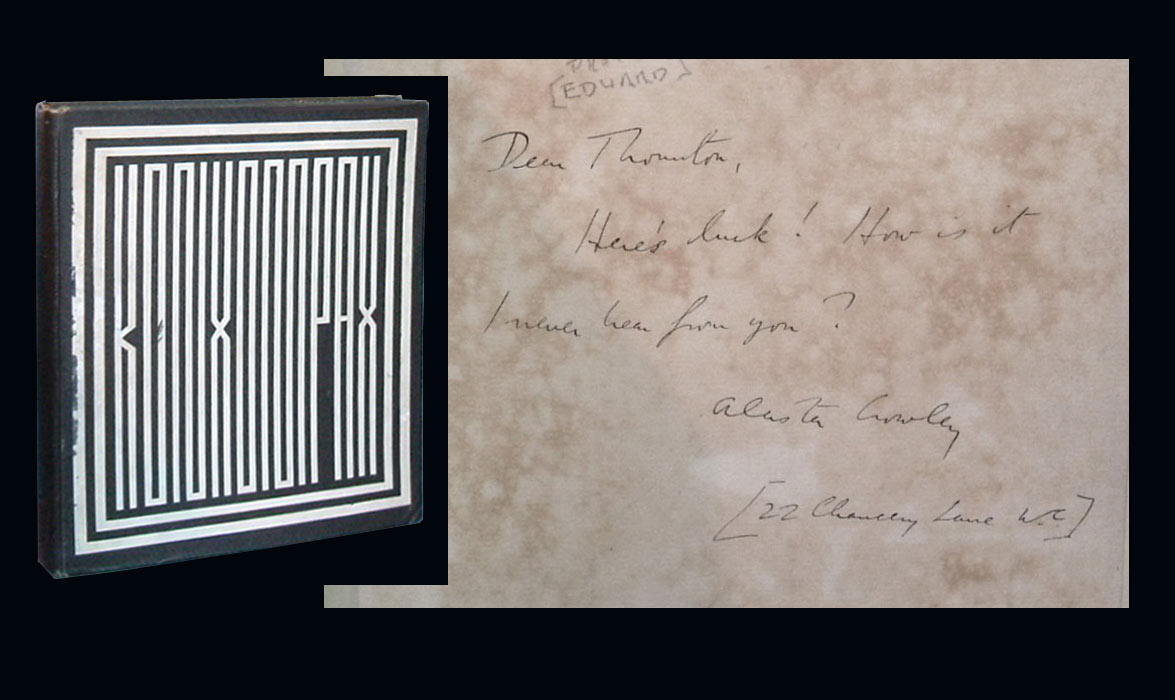 KONX OM PAX
[EDWARD]
Dear Thornton,
Here's luck! How is it
I never hear from you?
Aleister Crowley
[22 Chancery Lane W.C]